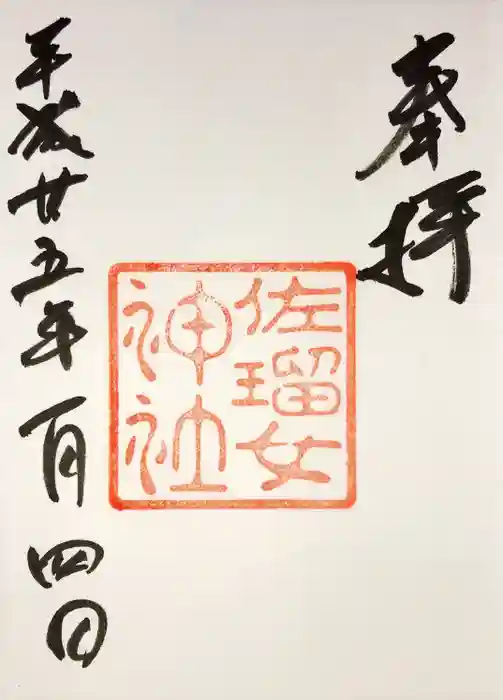 奉拝
佐瑠女
神社
平成廿五年一月四日